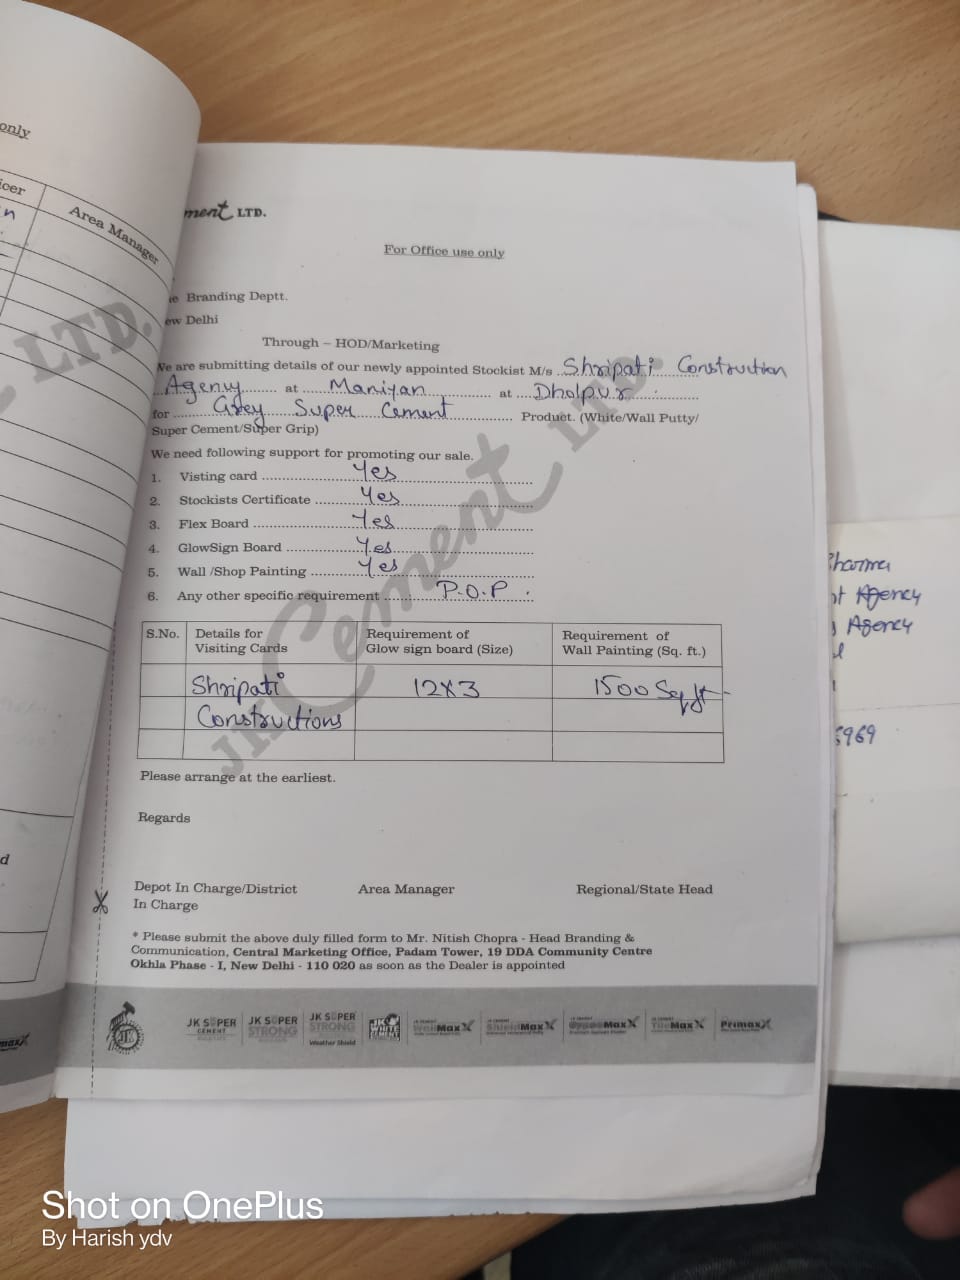 only
icer
Area Manager
LTD.
ment LTD.
For Office use only
e Branding Deptt.
ew Delhi
Through – HOD/Marketing
We are submitting details of our newly appointed Stockist M/s Shripati Construction
Agency at Maniyan at Dholpur
for Grey Super Cement Product. (White/Wall Putty/
Super Cement/Super Grip)
We need following support for promoting our sale.
1. Visting card Yes
2. Stockists Certificate Yes
3. Flex Board Yes
4. GlowSign Board Yes
5. Wall /Shop Painting Yes
6. Any other specific requirement P.O.P
JK Cement LTD.
S.No. Details for Visiting Cards Requirement of Glow sign board (Size) Requirement of Wall Painting (Sq. ft.)
Shripati 12X3 1500 Sqft
Constructions
Please arrange at the earliest.
Regards
Depot In Charge/District Area Manager Regional/State Head
In Charge
* Please submit the above duly filled form to Mr. Nitish Chopra - Head Branding &
Communication, Central Marketing Office, Padam Tower, 19 DDA Community Centre
Okhla Phase - I, New Delhi - 110 020 as soon as the Dealer is appointed
JK JK SUPER CEMENT JK SUPER STRONG JK SUPER STRONG Weather Shield JK WHITE CEMENT WallMaxX ShieldMaxX GypsoMaxX TileMaxX PrimaxX
harma
nt Agency
Agency
6969
Shot on OnePlus
By Harish ydv